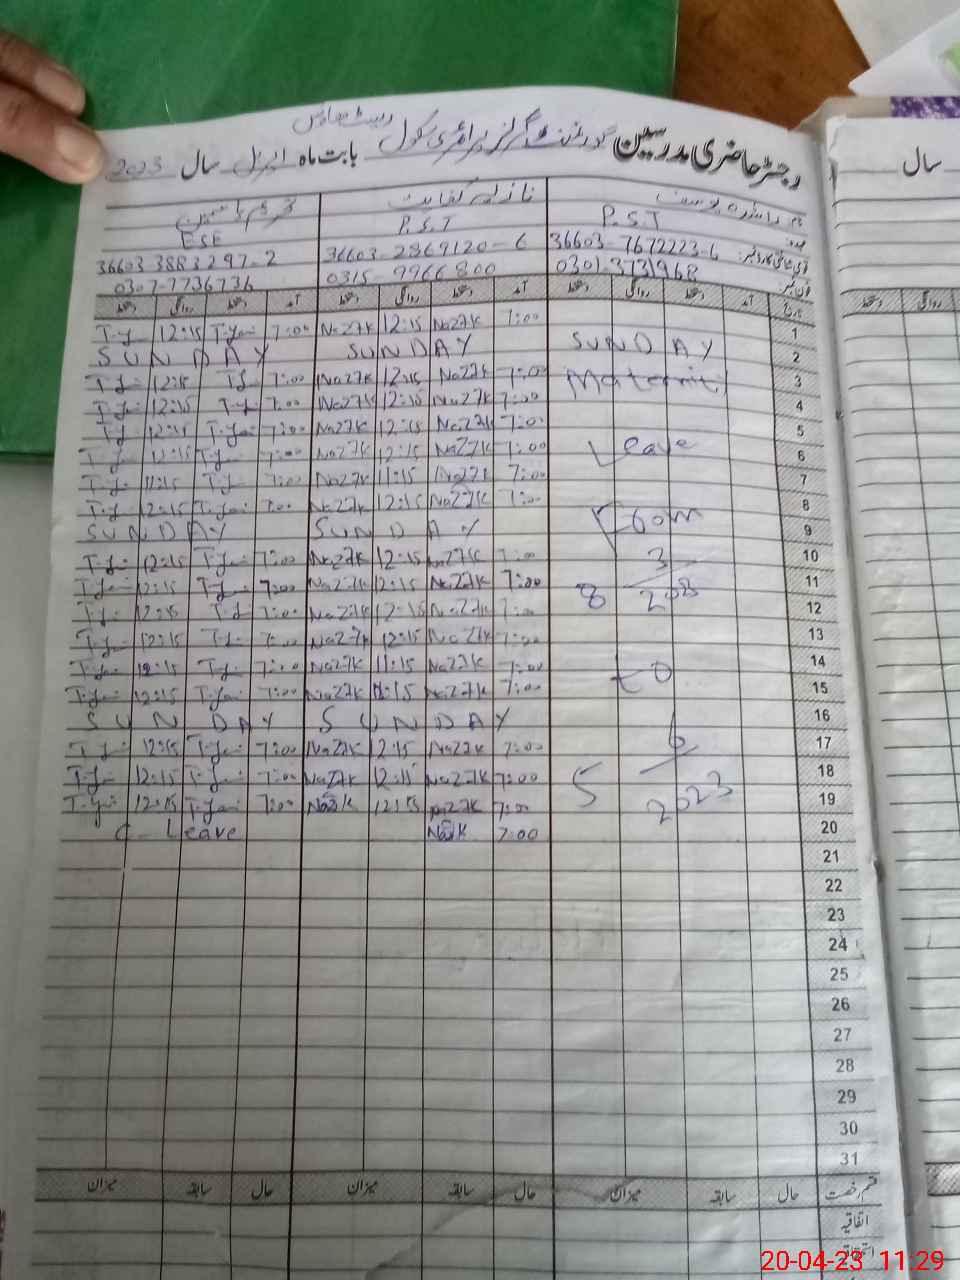 ریسٹ ہاؤس
رجسٹر حاضری مدرسین گورنمنٹ گرلز پرائمری سکول بابت ماہ اپریل سال 2023
سال
نام راشدہ یوسف نازلہ کفایت تحریم یاسمین
عہدہ P.S.T P.S.T ESE
قومی شناختی کارڈ نمبر: 36603-7672223-6 36603-2869120-6 36603 3883297-2
فون نمبر: 0301-3731968 0315-9966800 0307-7736736
تاریخ آمد دستخط روانگی دستخط آمد دستخط روانگی دستخط آمد دستخط روانگی دستخط
1 7:00 Na27k 12:15 Na27k 7:00 12:15
2 SUNDAY SUNDAY SUNDAY
3 Maternity 7:00 Na27k 12:15 Na27k 7:00 12:15
4 7:00 Na27k 12:15 Na27k 7:00 12:15
5 7:00 Na27k 12:15 Na27k 7:00 12:15
6 Leave 7:00 Na27k 12:15 Na27k 7:00 12:15
7 7:00 Na27k 11:15 Na27k 7:00 11:15
8 7:00 Na27k 12:15 Na27k 7:00 12:15
9 From SUNDAY SUNDAY
10 3 7:00 Na27k 12:15 Na27k 7:00 12:15
11 7:00 Na27k 12:15 Na27k 7:00 12:15
12 8 7:00 Na27k 12:15 Na27k 7:00 12:15
13 7:00 Na27k 12:15 Na27k 7:00 12:15
14 to 7:00 Na27k 11:15 Na27k 7:00 12:15
15 7:00 Na27k 12:15 Na27k 7:00 12:15
16 SUNDAY SUNDAY
17 6 7:00 Na27k 12:15 Na27k 7:00 12:15
18 5 7:00 Na27k 12:15 Na27k 7:00 12:15
19 2023 7:00 Na27k 12:15 7:00 12:15
20 7:00 C-Leave
21
22
23
24
25
26
27
28
29
30
31
قسم رخصت حال سابقہ میزان حال سابقہ میزان حال سابقہ میزان
اتفاقیہ
20-04-23 11:29